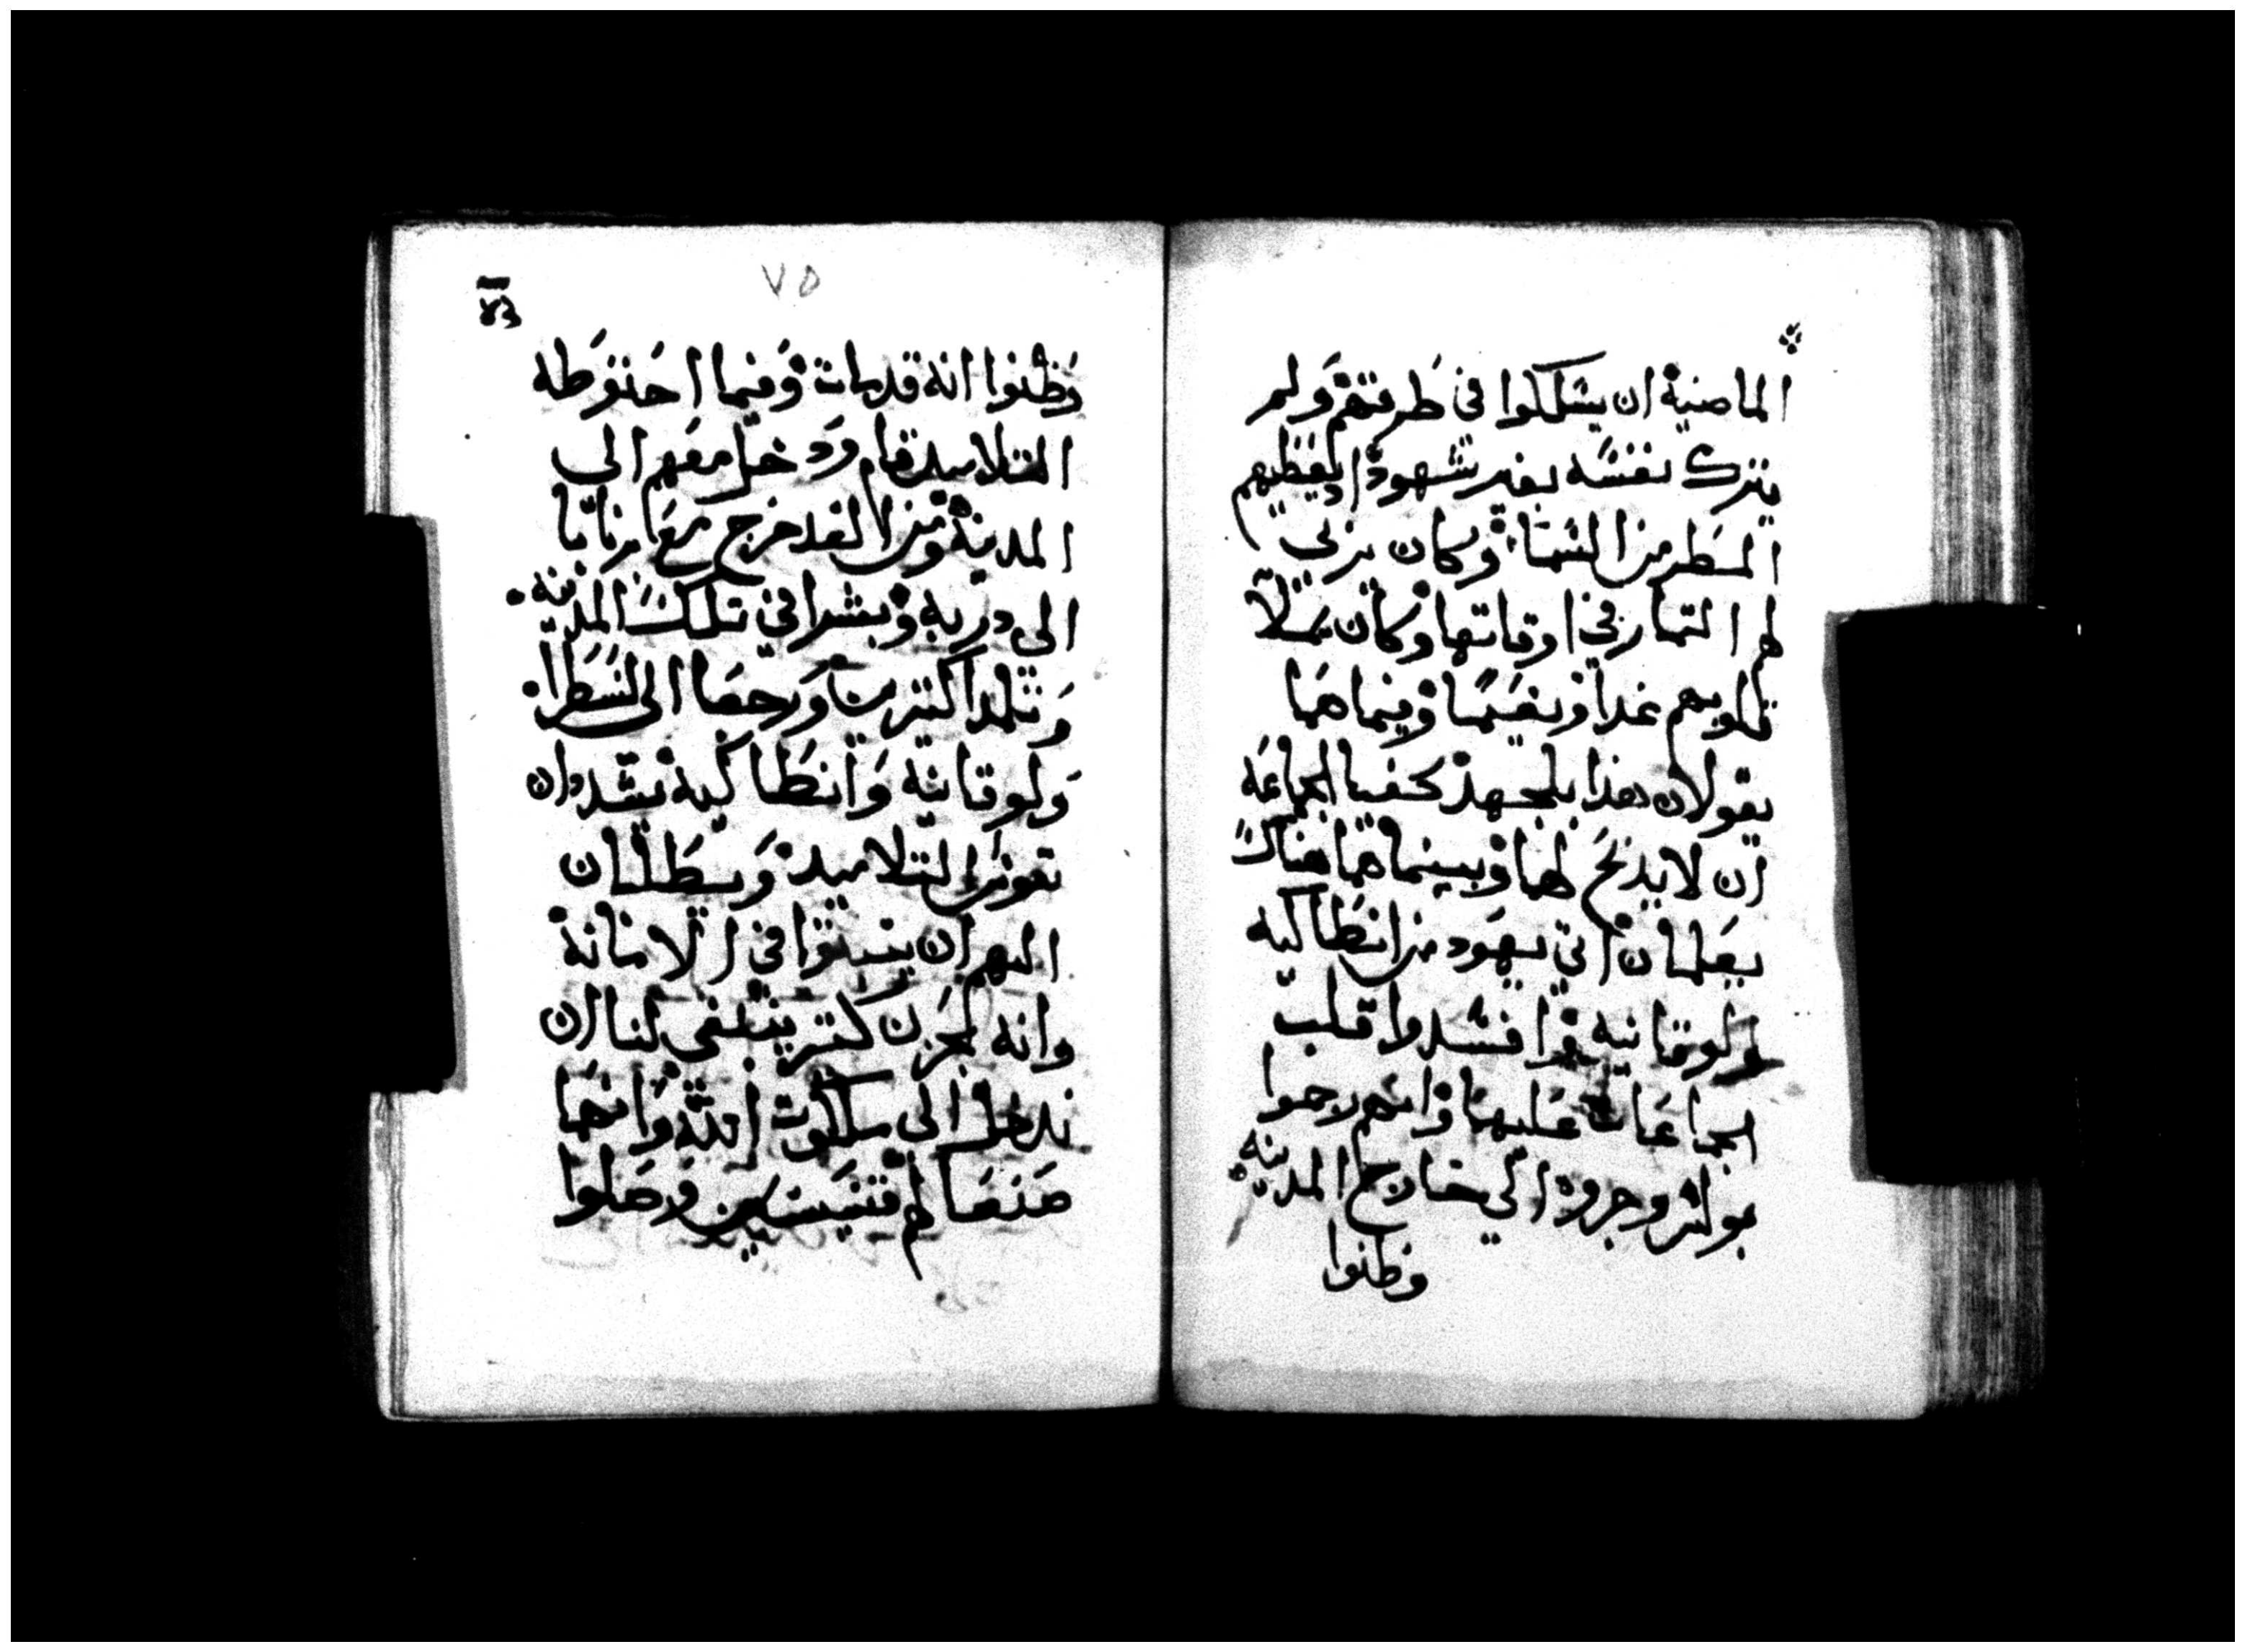 الماضية ان يسلكوا في طرقتهم ولم
يترك نفسه بغير شهود اد يعطيهم
المطر من السماء وكان يربي
لهم التمار في اوقاتها وكان يملا
قلوبهم غدا ونعيما وفيما هما
يقولان هدا بالجهد كفيا الجماعة
ان لا يدبح لهما وبينما هما هناك
يعلمان اتي يهود من انطاكيه
ولوقانيه وافسدوا قلب
الجماعات عليهما وانهم رجموا
بولس وجروه الي خارج المدينه
وظنوا
٧٥
وظنوا انه قد مات وفيما احتوطه
التلاميد قام ودخل معهم الى
المدينة ومن الغد خرج مع برنابا
الى دربه وبشرا في تلك المدينه
وتلمدا كتيرين ورجعا الى لسطرا
ولوقانية وانطاكية يشددان
نفوس التلاميد ويطلبان
اليهم ان يتبتوا في الامانة
وانه بحزن كتير ينبغي لنا ان
ندخل الى ملكوت الله وانهما
صنعا لهم قسيسين وصلوا